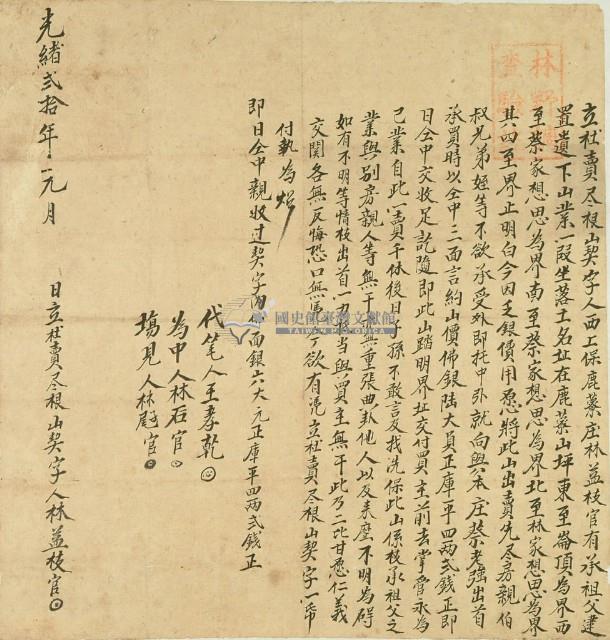 立杜賣尽根山契字人西上保鹿藔庄林益枝官有承祖父建
置遺下山業一段坐落土名址在鹿藔山坪東至崙頂為界西
至蔡家想思為界南至蔡家想思為界北至林家想思為界
其四至界止明白今因乏銀價用愿將此山出賣先尽房親伯
叔兄弟姪等不欲承受外即托中引就向與本庄蔡老強出首
承買時以仝中三面言約山價佛銀陆大員正庫平四两弍錢正即
日仝中交收足訖隨即此山踏明界址交付買主前去掌管永為
己業自此一賣千休後日子孫不敢言及找洗保此山係枝承祖父之
業與別房親人等無干無重張典卦他人以及來歷不明為碍
如有不明等情枝出首一力抵当與買主無干此乃二比甘愿仁義
交関各無反悔恐口無憑今欲有憑立杜賣尽根山契字一帋
付執為炤
即日仝中親收过契字內佛面銀六大元正庫平四两弍錢正
代筆人王孝乾
為中人林石官
塲見人林官
光緒弍拾年十一元月 日立杜賣尽根山契字人林益枝官
林野
查驗
國史館臺灣文獻館
TAIWAN HISTORICA